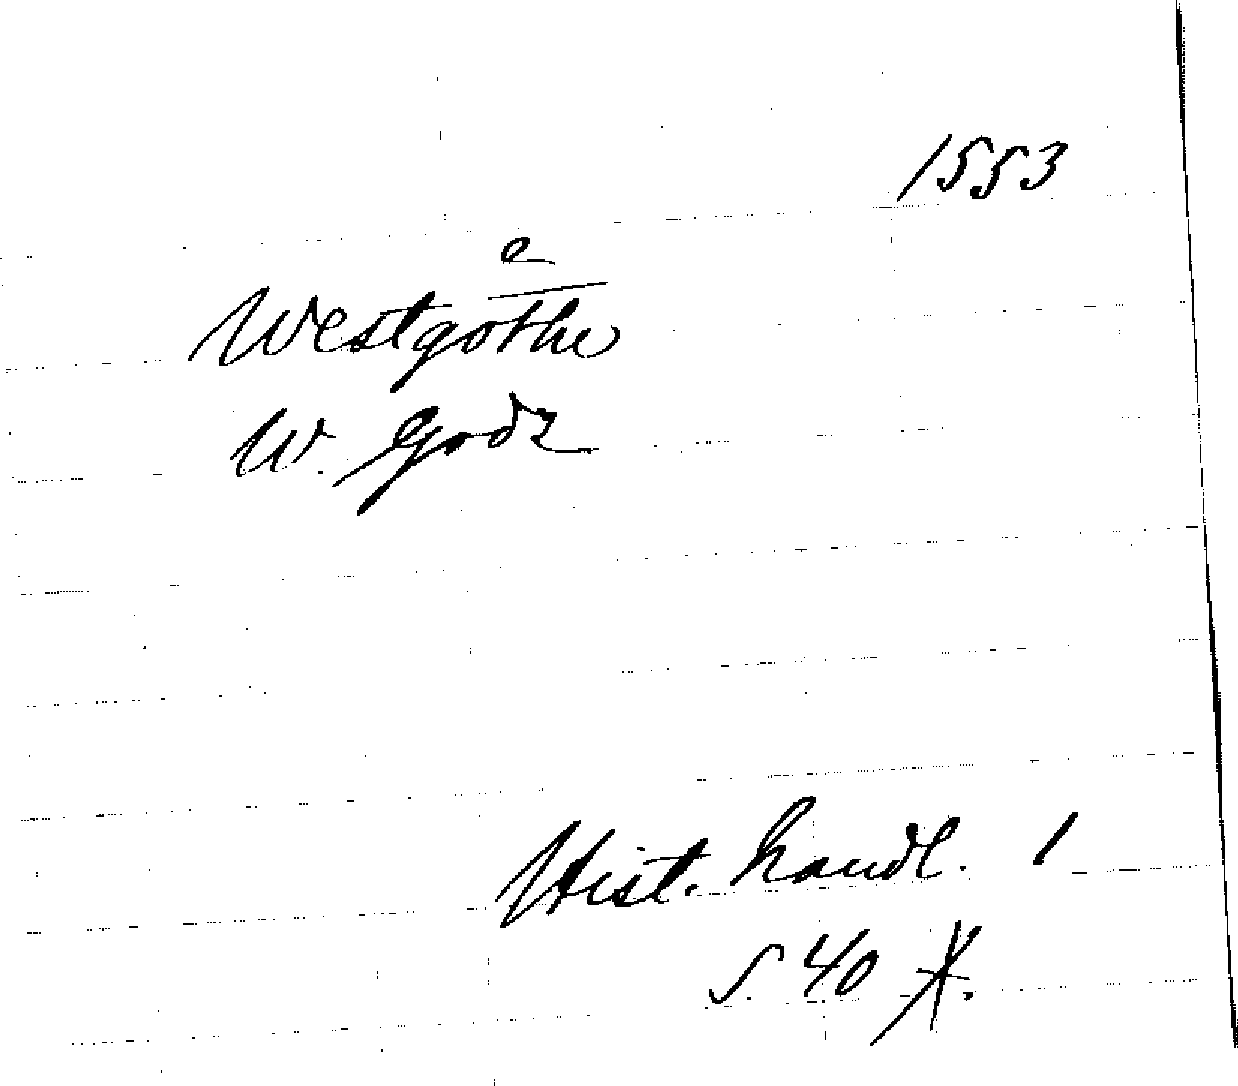 1553
e
Westgothe
W. Godz
Hist. handl. 1
s. 40